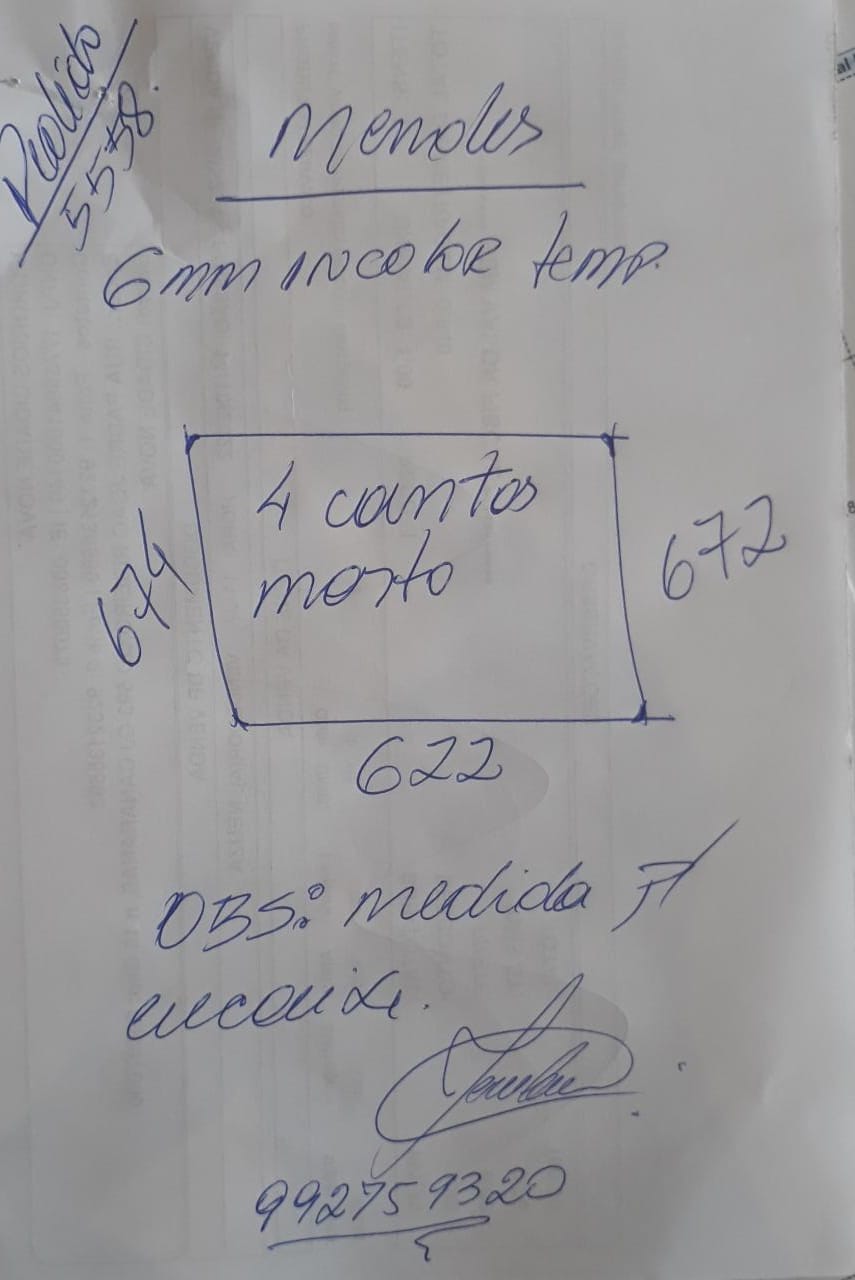 Pedido
5558.
Mendes
6mm incolor temp.
4 cantos
morto
674
672
622
OBS: medida p/
encaixe.
992759320